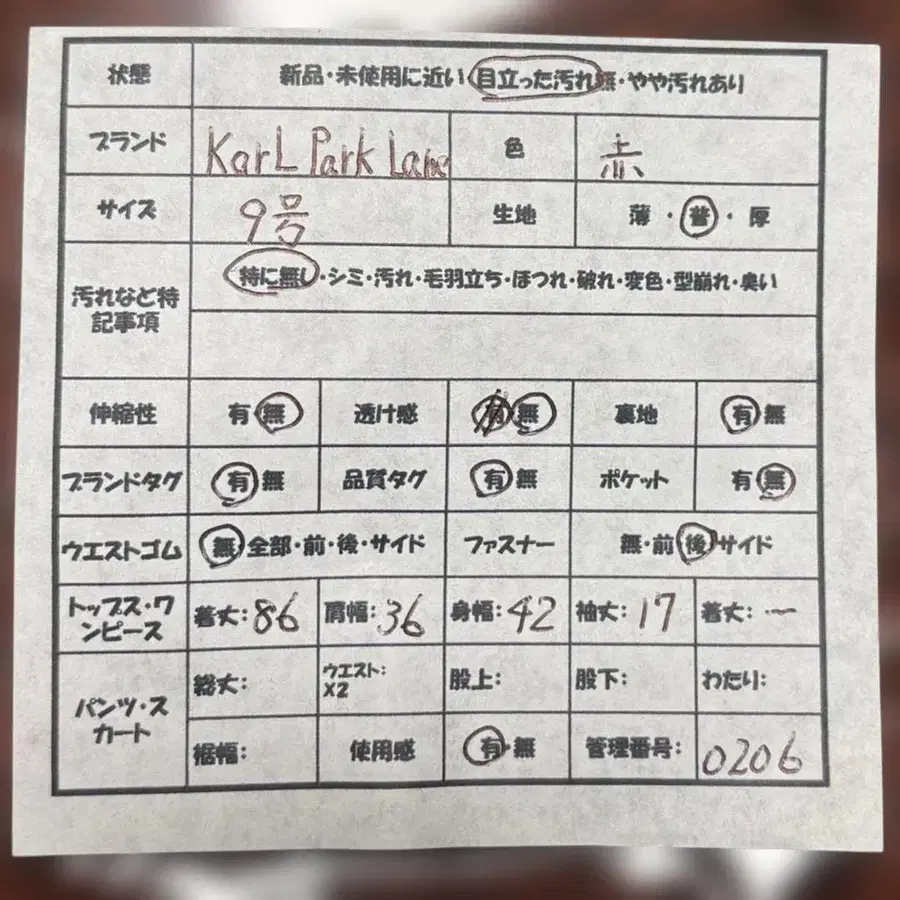 状態 新品・未使用に近い・目立った汚れ無・やや汚れあり
ブランド KarL Park Lane 色 赤
サイズ 9号 生地 薄・普・厚
汚れなど特記事項 特に無し・シミ・汚れ・毛羽立ち・ほつれ・破れ・変色・型崩れ・臭い
伸縮性 有・無 透け感 有・無 裏地 有・無
ブランドタグ 有・無 品質タグ 有・無 ポケット 有・無
ウエストゴム 無・全部・前・後・サイド ファスナー 無・前・後・サイド
トップス・ワンピース 着丈:86 肩幅:36 身幅:42 袖丈:17 着丈:ー
パンツ・スカート 総丈: ウエスト:X2 股上: 股下: わたり:
裾幅: 使用感 有・無 管理番号: 0206